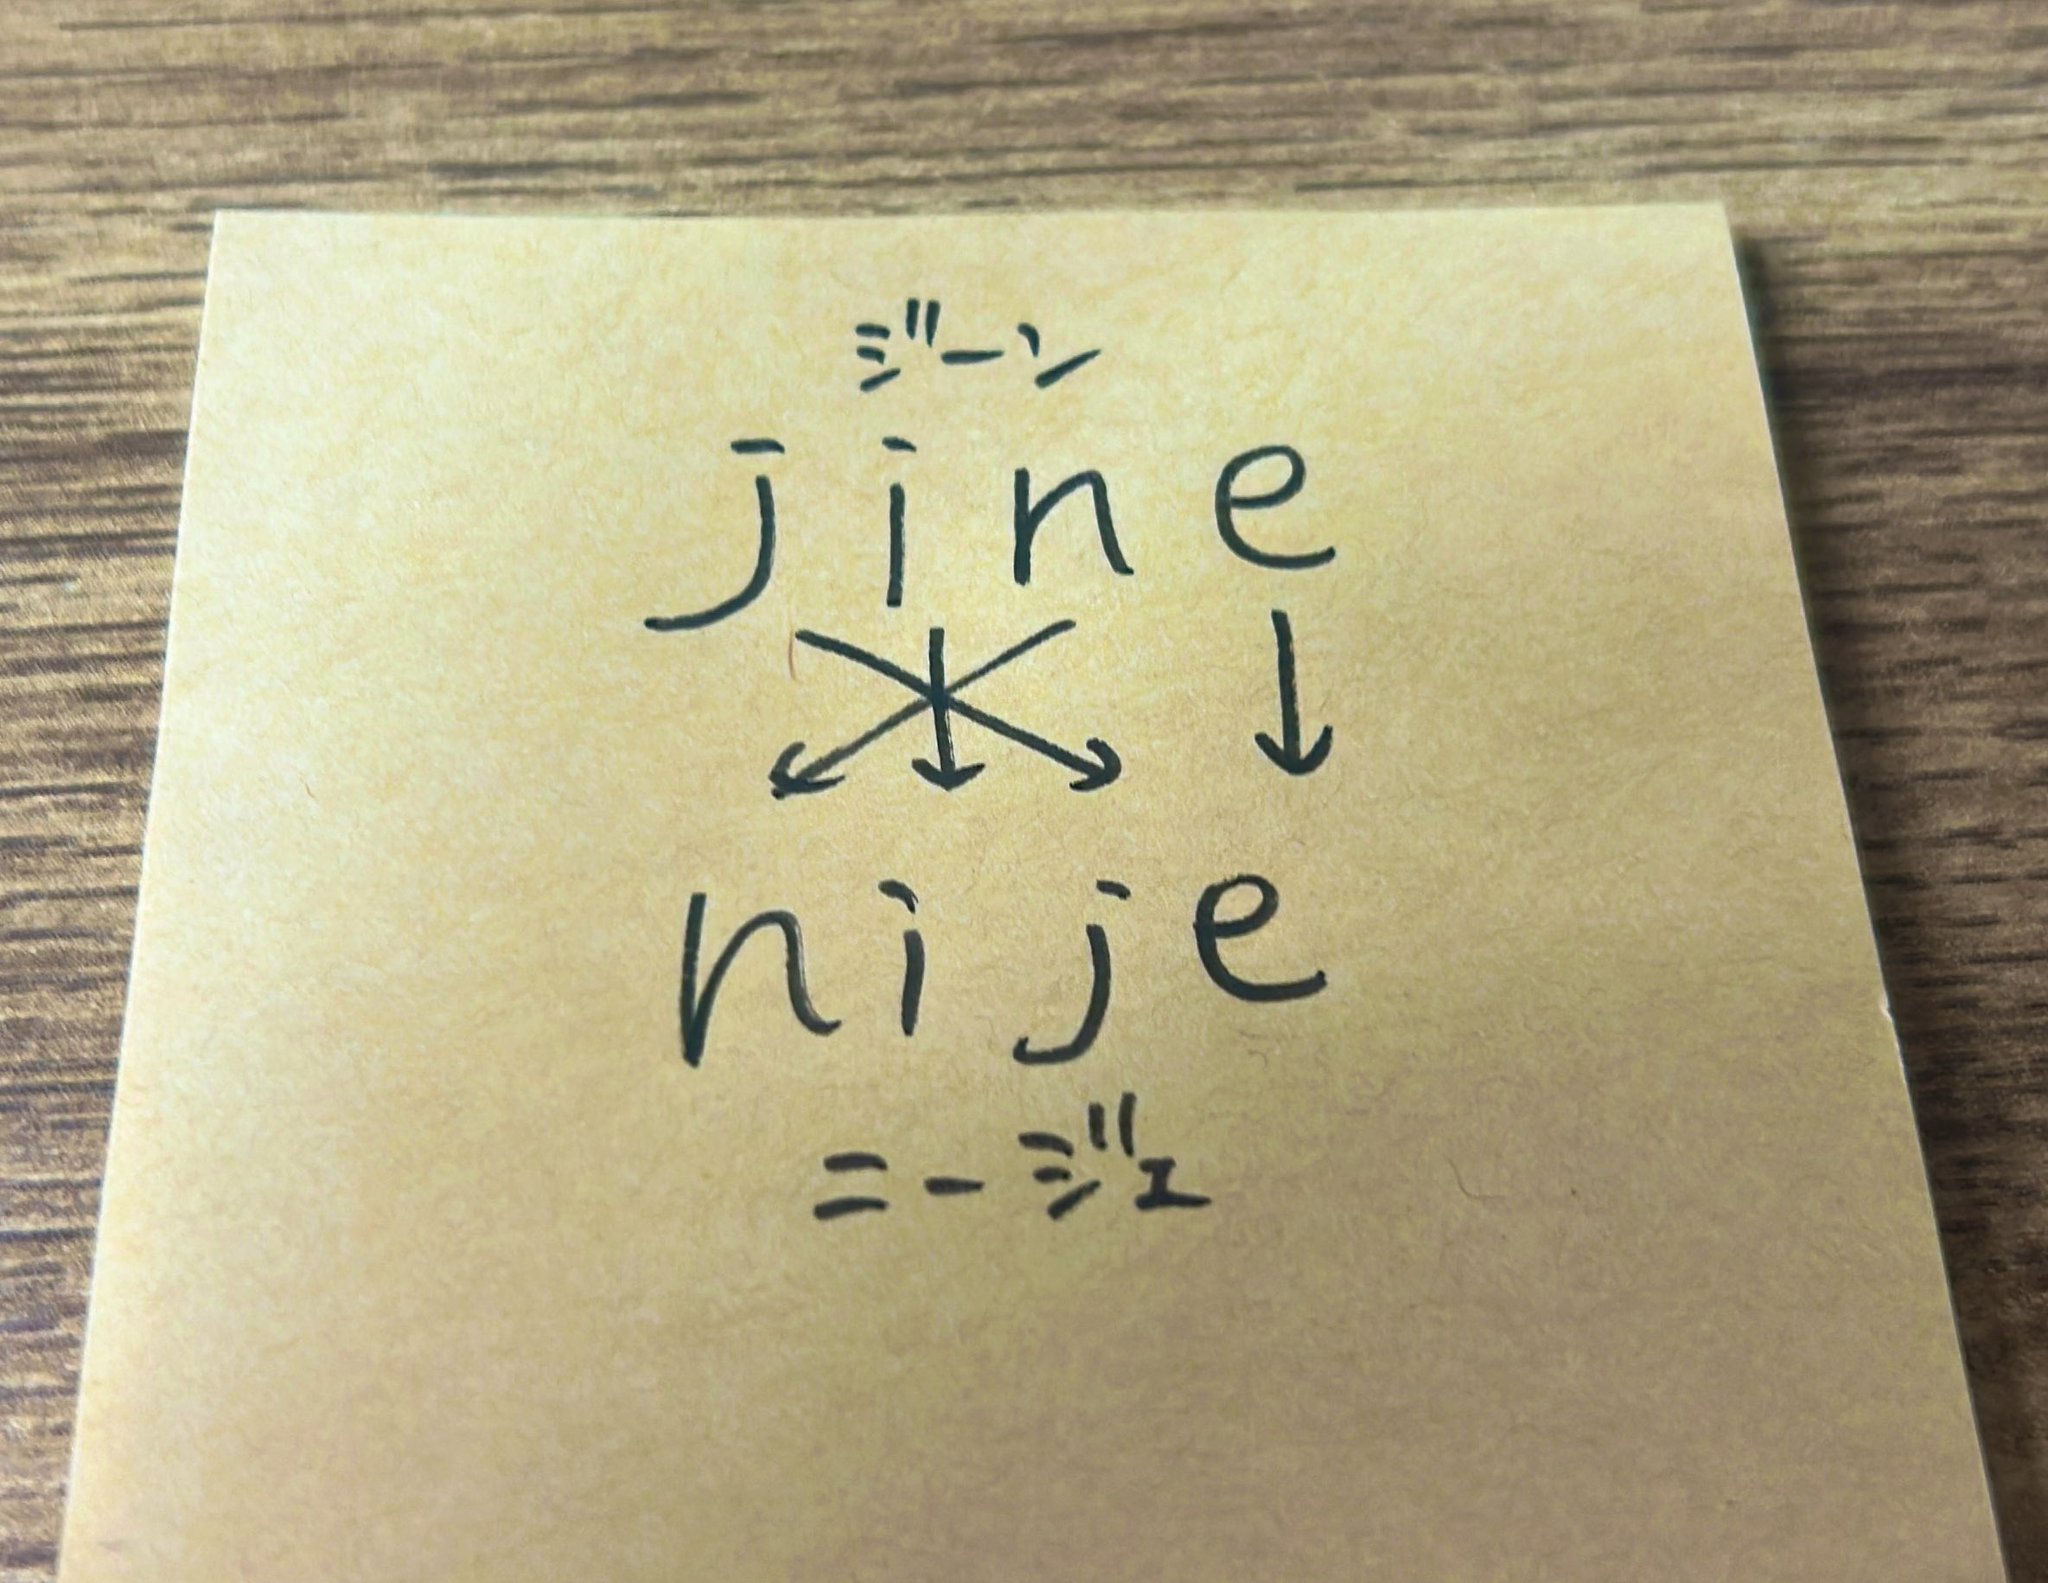 ジーン
jine
nije
ニージェ